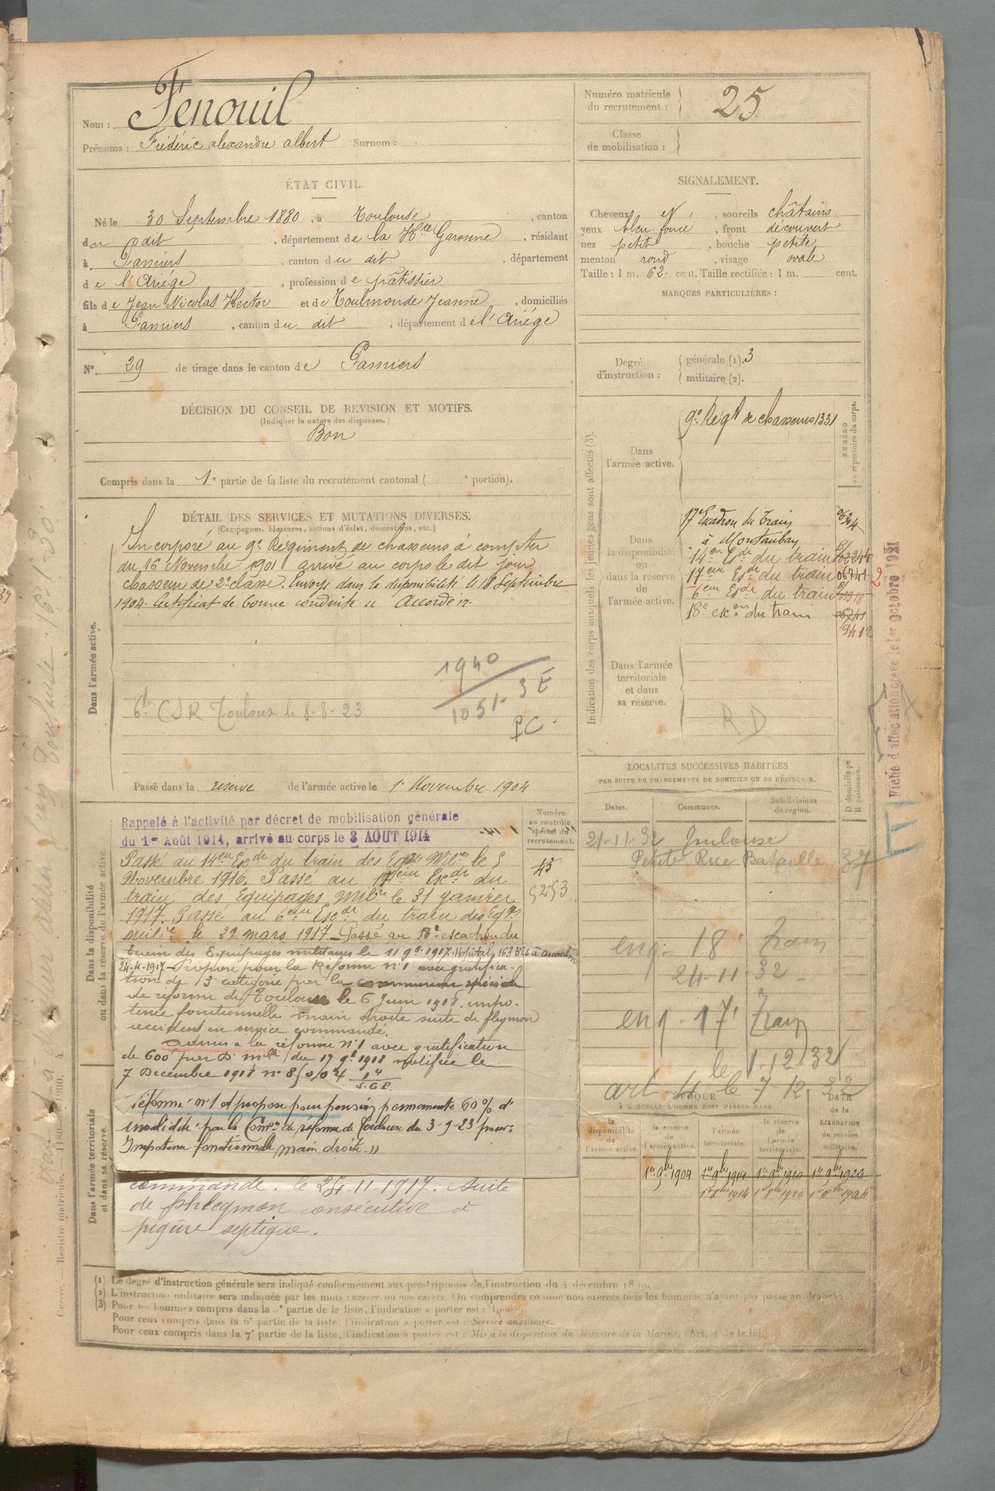 Nom : Fénouil
Prénoms : Frédéric alexandre albert Surnom :
Numéro matricule du recrutement : 25
Classe de mobilisation :
ÉTAT CIVIL.
Né le 30 Septembre 1880, à Toulouse, canton
du dit, département de la Hte Garonne, résidant
à Pamiers, canton du dit, département
de l'Ariège, profession de pâtissier
fils de Jean Nicolas Hector et de Toulmonde Jeanne, domiciliés
à Pamiers, canton du dit, département de l'Ariège
N° 29 de tirage dans le canton de Pamiers
DÉCISION DU CONSEIL DE REVISION ET MOTIFS.
(Indiquer la nature des dispenses.)
Bon
Compris dans la 1e partie de la liste du recrutement cantonal ( e portion).
SIGNALEMENT.
Cheveux et, sourcils châtains
yeux bleu foncé, front découvert
nez petit, bouche petite
menton rond, visage ovale
Taille : 1 m. 62 cent. Taille rectifiée : 1 m. cent.
MARQUES PARTICULIÈRES :
Degré d'instruction : générale (1). 3
militaire (2).
DÉTAIL DES SERVICES ET MUTATIONS DIVERSES.
(Campagnes, blessures, actions d'éclat, décorations, etc.)
Dans l'armée active.
Incorporé au 9e Régiment de chasseurs à compter
du 16 Novembre 1901 arrivé au corps le dit jour
chasseur de 2e classe. Envoyé dans la disponibilité le 18 Septembre
1904. Certificat de bonne conduite " Accordé "
1940
1051 3 E
PC
6e CSR Toulouse le 8-8-23
Passé dans la réserve de l'armée active le 1r Novembre 1904
Indication des corps auxquels les jeunes gens sont affectés (3).
NUMÉRO au répertoire du corps.
Dans l'armée active.
9e Régt de chasseurs 1331
Dans la disponibilité ou dans la réserve de l'armée active.
17e Escadron du Train
à Montauban
14eme Esde du train
17eme Esde du train
6eme Esde du train
18e escon du train
Dans l'armée territoriale et dans sa réserve.
R.D
Fiche d'affectation créée le 1er octobre 1921
Dans la disponibilité ou dans la réserve de l'armée active.
Numéro au contrôle spécial du recrutement.
43
5253
Rappelé à l'activité par décret de mobilisation générale
du 1er Août 1914, arrivé au corps le 3 AOUT 1914
Passé au 14eme Esde du train des Eqps Mtres le 5
Novembre 1916. Passé au 17eme Escdr du
train des Equipages Mtres le 31 janvier
1917. Passé au 6eme Escdr du train des Eqps
milires le 29 mars 1917. Passé au 18e escadron du
train des Equipages militaires le 11 9bre 1917.
24-4-1917. Proposé pour la Réforme n°1 avec gratifica-
tion de catégorie par la commission spéciale
de réforme de Toulouse le 6 Juin 1918. impo-
tence fonctionnelle main droite suite de flegmon
accident en service commandé.
Admis à la réforme n°1 avec gratification
de 600f par D. mlle du 17 9bre 1918 notifiée le
7 Décembre 1918
Réformé n°1 et proposé pour pension permanente 60 % d'
invalidité par la Comon de réforme de Toulouse du 3-9-23 pour :
Impotence fonctionnelle main droite. "
Dans l'armée territoriale et dans sa réserve.
commandé. le 24-11-1917. Suite
de phlegmon consécutive à
piqûre septique.
LOCALITÉS SUCCESSIVES HABITÉES
PAR SUITE DE CHANGEMENTS DE DOMICILE OU DE RÉSIDENCE.
Dates. Communes. Subdivisions de région. D domicile ou R résidence.
21-11-32 Toulouse
Petite Rue Bataille 37
eng. 18e Train
24-11-32
eng. 17e Train
le 1.12.32
art. 4 le 7-12-32
ÉPOQUE
À LAQUELLE L'HOMME DOIT PASSER DANS
la disponibilité de l'armée active. la réserve de l'armée active. l'armée territoriale. la réserve de l'armée territoriale. DATE de la LIBÉRATION du service militaire.
1er 9bre 1904
(1) Le degré d'instruction générale sera indiqué conformément aux prescriptions de l'instruction du 4 décembre 1889.
(2) L'instruction militaire sera indiquée par les mots : exercé ou non exercé. On comprendra comme non exercés tous les hommes n'ayant pas passé
(3) Pour les hommes compris dans la 5e partie de la liste, l'indication à porter est :
Pour ceux compris dans la 6e partie de la liste, l'indication à porter est : Service auxiliaire.
Pour ceux compris dans la 7e partie de la liste, l'indication à porter est : Mis à la disposition du Ministre de la Marine. (Art. 4 de la loi.)